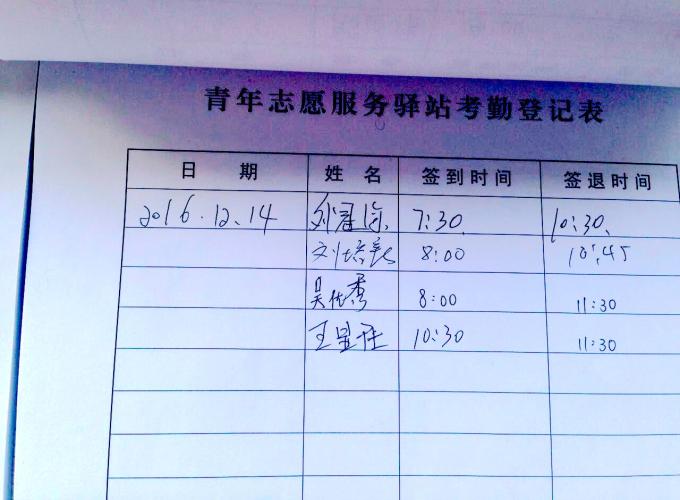 青年志愿服务驿站考勤登记表
日 期 姓 名 签到时间 签退时间
2016.12.14 7:30 10:30
8:00 10:45
吴 秀 8:00 11:30
王 8:00 11:30